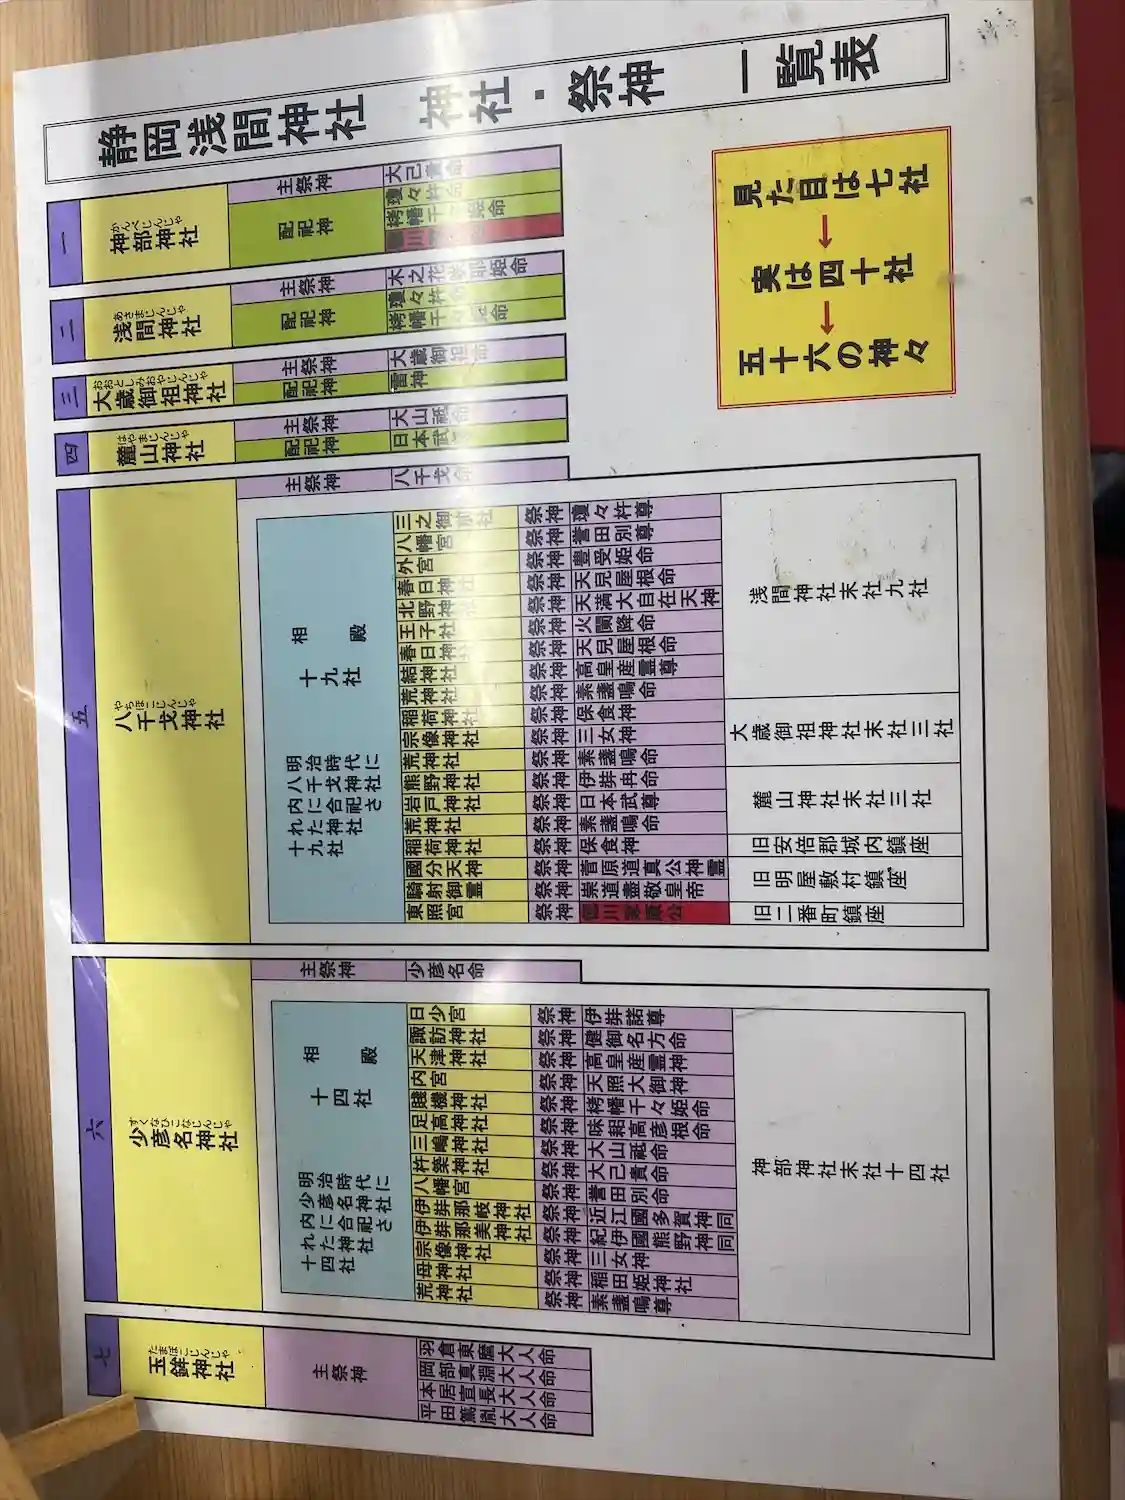 静岡浅間神社 神社・祭神 一覧表
見た目は七社
↓
実は四十社
↓
五十六の神々
一
神部神社
かんべじんじゃ
主祭神
大己貴命
配祀神
瓊々杵
栲幡千 姫命
川
二
浅間神社
あさまじんじゃ
主祭神
木之花 姫命
配祀神
瓊々杵
栲幡千 命
三
大歳御祖神社
おおとしみおやじんじゃ
主祭神
大歳御祖命
配祀神
雷神
四
麓山神社
はやまじんじゃ
主祭神
大山祇命
配祀神
日本武
五
八千戈神社
やちほこじんじゃ
主祭神
八千戈命
相殿
十九社
明治時代に
八千戈神社
内に合祀さ
れた神社
十九社
三之御前社 祭神 瓊々杵尊
八幡宮 祭神 誉田別尊
外宮 祭神 豊受姫命
春日神社 祭神 天児屋根命
北野神 祭神 天満大自在天神
王子社 祭神 火闌降命
春日神 祭神 天児屋根命
結神社 祭神 高皇産霊尊
荒神社 祭神 素盞嗚命
稲荷神社 祭神 保食神
宗像神社 祭神 三女神
荒神社 祭神 素盞嗚命
熊野神社 祭神 伊弉冉命
岩戸神社 祭神 日本武尊
荒神社 祭神 素盞嗚命
稲荷神社 祭神 保食神
國分天神 祭神 菅原道真公神霊
騎射御霊 祭神 崇道盡敬皇帝
東照宮 祭神 徳川家康公
浅間神社末社九社
大歳御祖神社末社三社
麓山神社末社三社
旧安倍郡城内鎮座
旧明屋敷村鎮座
旧二番町鎮座
六
少彦名神社
すくなひこなじんじゃ
主祭神
少彦名命
相殿
十四社
明治時代に
少彦名神社
内に合祀さ
れた神社
十四社
日少宮 祭神 伊弉諾尊
諏訪神社 祭神 健御名方命
天津神社 祭神 高皇産霊神
内宮 祭神 天照大御神
賤機神社 祭神 栲幡千々姫命
足高神社 祭神 味耜高彦根命
三嶋神社 祭神 大山祇命
杵築神社 祭神 大己貴命
八幡宮 祭神 誉田別命
伊弉那岐神社 祭神 近江國多賀神同
伊弉那美神社 祭神 紀伊國熊野神同
宗像神社 祭神 三女神
母神社 祭神 稲田姫神社
荒神社 祭神 素盞嗚尊
神部神社末社十四社
七
玉鉾神社
たまほこじんじゃ
主祭神
羽倉東麿大人命
岡部真淵大人命
本居宣長大人命
平田篤胤大人命